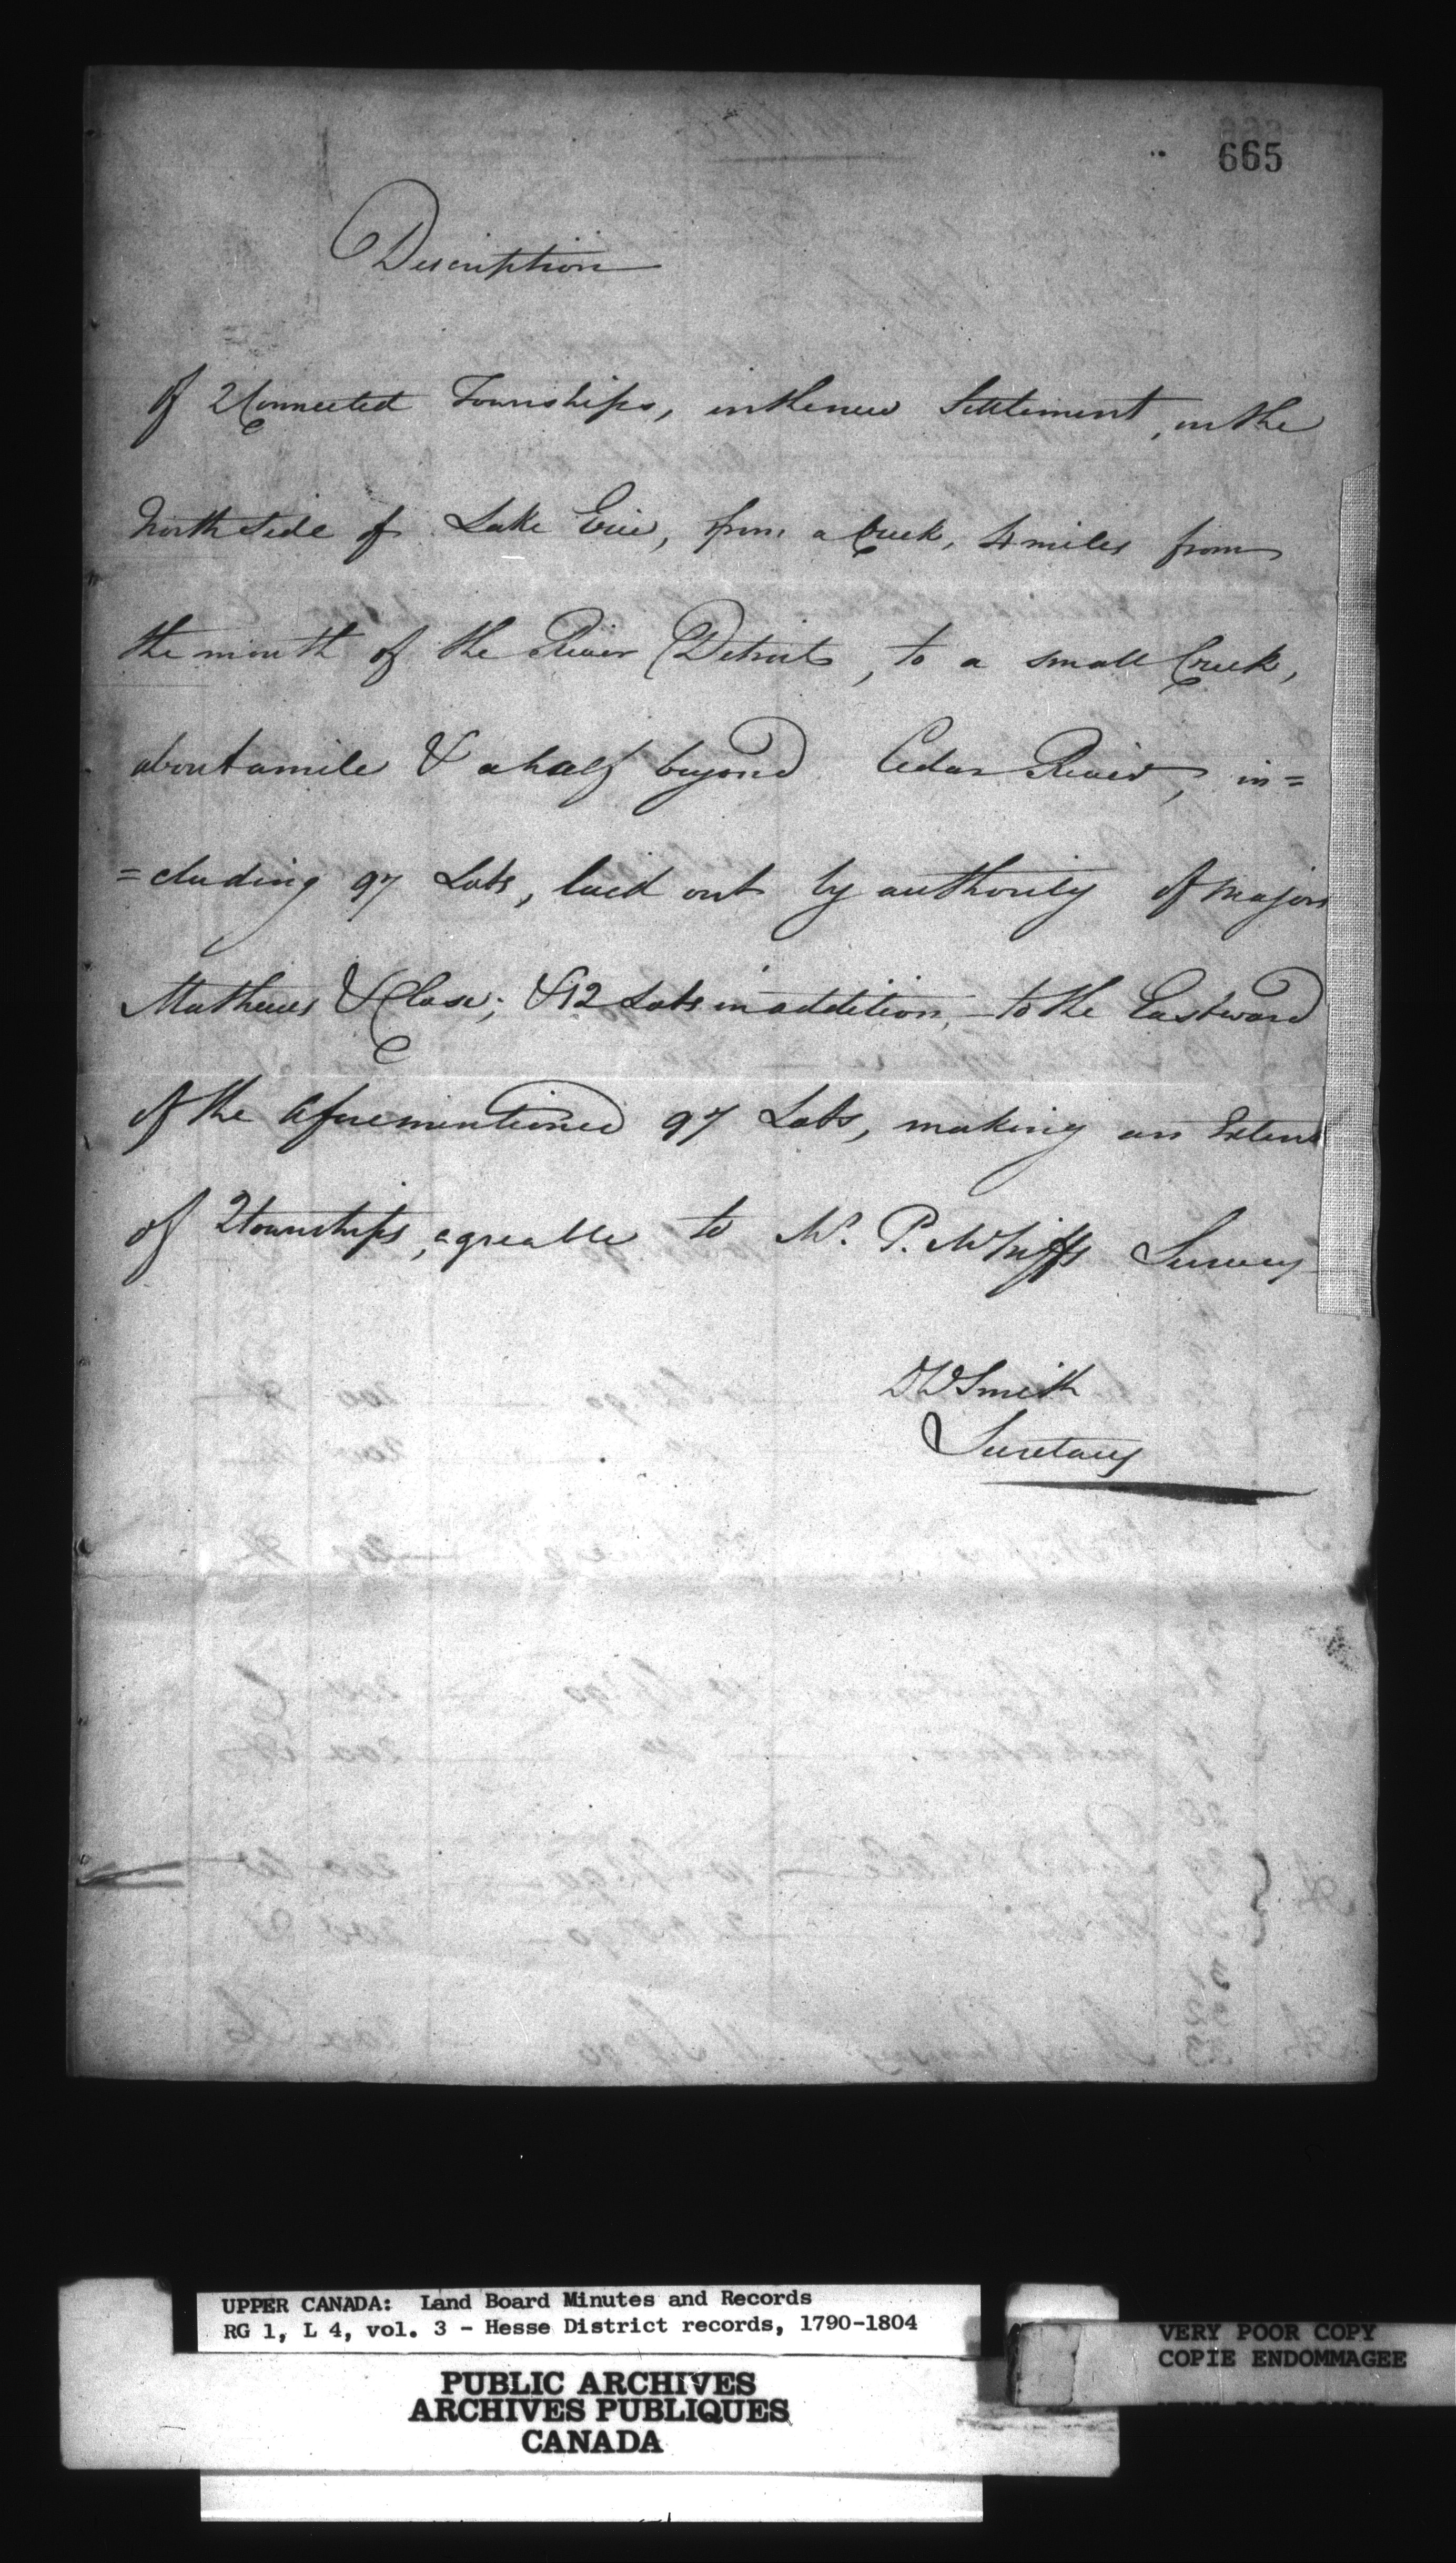 665
Description
of 2 Connected Townships, in the new Settlement, on the
North Side of Lake Erie, from a Creek, 4 miles from
the mouth of the River Detroit, to a small Creek,
about a mile & a half beyond Cedar River, in=
=cluding 97 Lots, laid out by authority of Majors
Mathews & Close; & 12 Lots in addition, to the Eastward
of the aforementioned 97 Lots, making an Extent
of 2 townships, agreable to Mr. P. McNiffs Survey
DW Smith
Secretary
UPPER CANADA: Land Board Minutes and Records
RG 1, L 4, vol. 3 - Hesse District records, 1790-1804
PUBLIC ARCHIVES
ARCHIVES PUBLIQUES
CANADA
VERY POOR COPY
COPIE ENDOMMAGEE